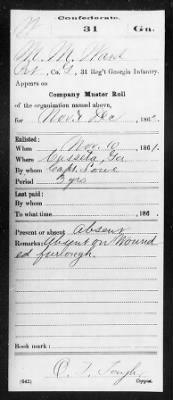 Confederate.
31 Ga.
M. M. Ward
Pvt, Co. , 31 Reg't Georgia Infantry.
Appears on
Company Muster Roll
of the organization named above,
for Nov & Dec , 186
Enlisted:
When Nov. 10 , 1861.
Where Cusseta, Ga
By whom Capt.
Period 3 yrs
Last paid:
By whom
To what time , 186 .
Present or absent Absent
Remarks: Absent on Wound
ed furlough.
Book mark:
(642) Copyist.